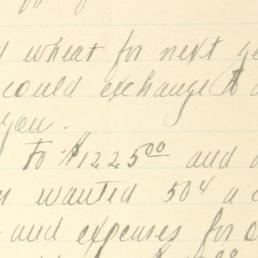 wheat for next
could exchange
you.
To $1225.00 and
wanted 50¢ a
and expenses for